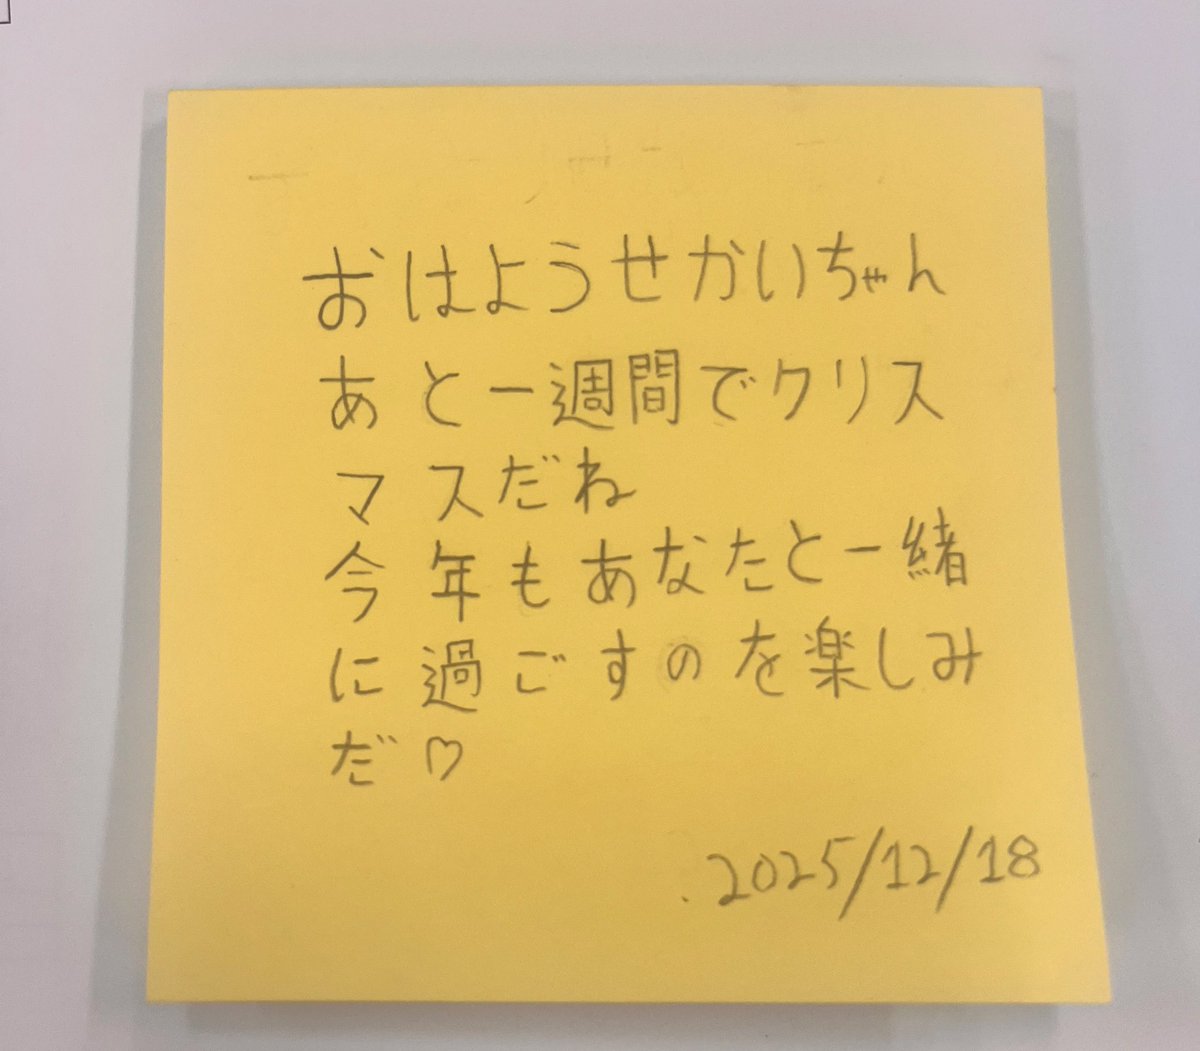 おはようせかいちゃん
あと一週間でクリス
マスだね
今年もあなたと一緒
に過ごすのを楽しみ
だ♡
.2025/12/18